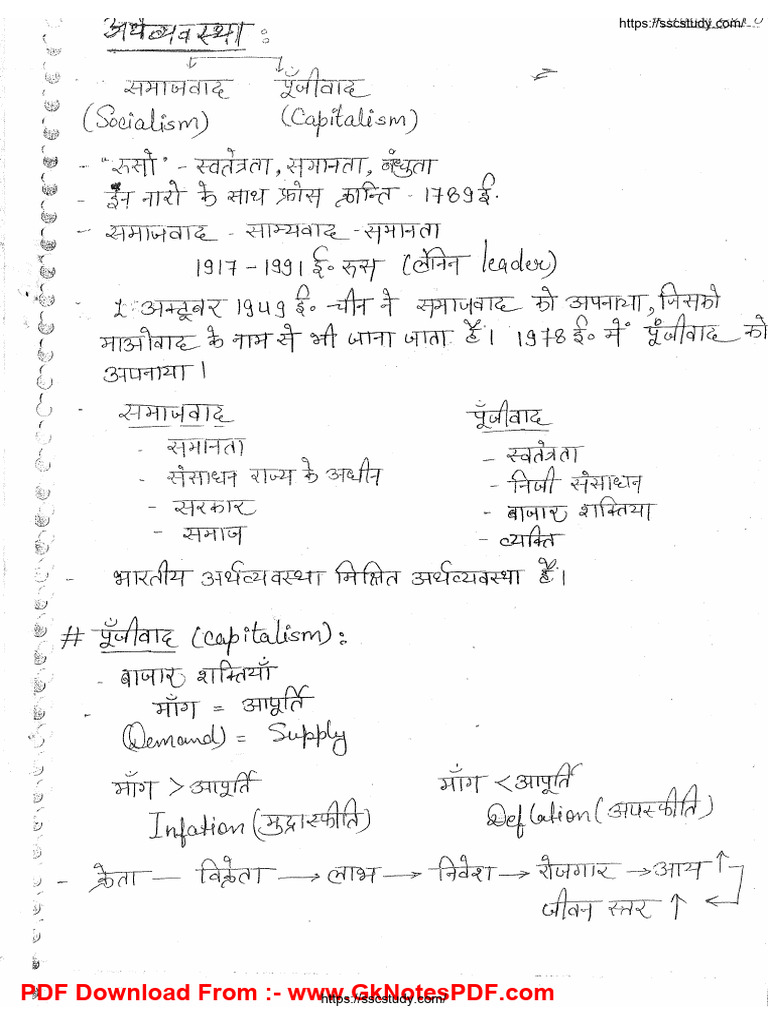 https://sscstudy.com/
अर्थव्यवस्था :
समाजवाद पूँजीवाद
(Socialism) (Capitalism)
- "रुसो" - स्वतंत्रता, समानता, बंधुता
- इन नारो के साथ फ्रांस क्रान्ति - 1789 ई.
- समाजवाद - साम्यवाद - समानता
1917 - 1991 ई॰ रुस (लेनिन leader)
- 1 अक्टूबर 1949 ई॰ चीन ने समाजवाद को अपनाया, जिसको
माओवाद के नाम से भी जाना जाता है। 1978 ई॰ में पूँजीवाद को
अपनाया।
- समाजवाद पूँजीवाद
- समानता - स्वतंत्रता
- संसाधन राज्य के अधीन - निजी संसाधन
- सरकार - बाजार शक्तिया
- समाज - व्यक्ति
- भारतीय अर्थव्यवस्था मिश्रित अर्थव्यवस्था है।
# पूँजीवाद (Capitalism) :
- बाजार शक्तियाँ
- माँग = आपूर्ति
(Demand) = Supply
माँग > आपूर्ति माँग < आपूर्ति
Infation (मुद्रास्फीति) Deflation (अपस्फीति)
- क्रेता — विक्रेता → लाभ → निवेश → रोजगार → आय ↑
जीवन स्तर ↑
PDF Download From :- www.GkNotesPDF.com
https://sscstudy.com/